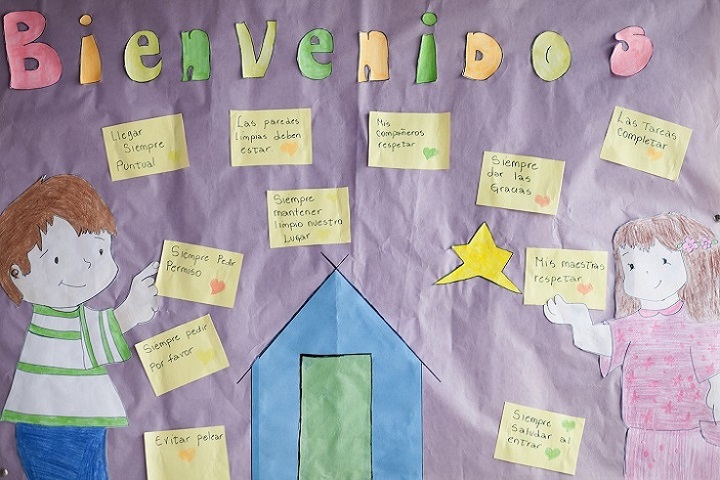 Bienvenidos
Llegar
Siempre
Puntual
Las paredes
limpias deben
estar.
Mis
compañeros
respetar
Siempre
dar las
Gracias
Las Tareas
Completar
Siempre
mantener
limpio nuestro
Lugar
Siempre Pedir
Permiso
Mis maestras
respetar.
Siempre pedir
Por favor
Evitar pelear
Siempre
Saludar al
entrar